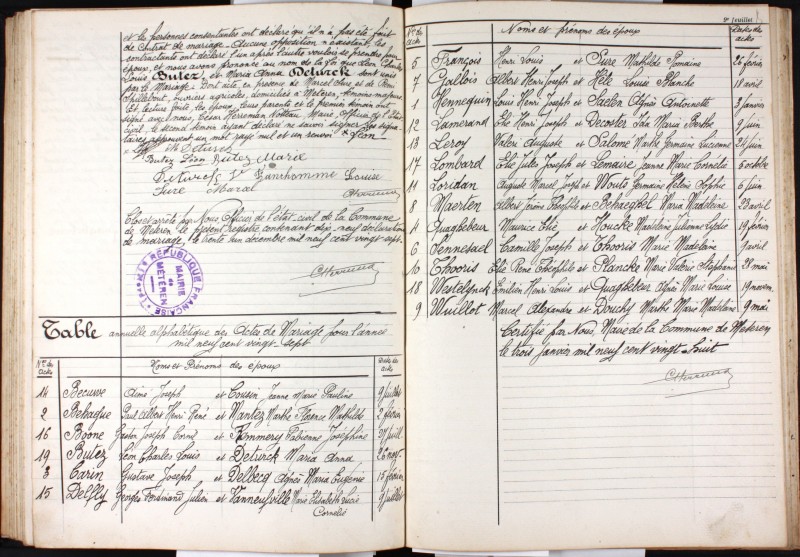 et les personnes consentantes ont déclaré qu'il n'a pas été fait
de Contrat de mariage. Aucune opposition n'existant, les
contractants ont déclaré l'un après l'autre vouloir se prendre pour
époux, et nous avons prononcé au nom de la loi que Léon Charles
Louis Butez et Maria Anna Deturck sont unis
par le Mariage. Dont acte en présence de Marcel Sure et de
ouvriers agricoles, domiciliés à Meteren, témoins majeurs
Et, lecture faite, les époux, leurs parents et le premier témoin ont
signé avec nous, César Herreman Maire, Officier de l'État
civil, le second témoin ayant déclaré ne savoir signer.
mot rayé nul et un renvoi Léon
M Deturck
Butez Léon Butez Marie
Deturck Vanthomme Louise
Sure Marcel
CHerreman
Clos et arrêté par Nous Officier de l'état-civil de la Commune
de Meteren le présent registre contenant dix-neuf déclarations
de mariage, le trente un décembre mil neuf cent vingt sept.
CHerreman
RÉPUBLIQUE FRANÇAISE
MAIRIE
DE
MÉTEREN
Table annuelle alphabétique des Actes de Mariage pour l'année
mil neuf cent vingt sept
Nos des actes
Noms et Prénoms des époux
Dates des actes
14 Becuwe Aimé Joseph et Cousin Jeanne Marie Pauline 9 juillet
2 Behague Paul Albert Henri René et Wantez Marthe Florence Mathilde 2 février
16 Boone Gaston Joseph Corné et Pommery Fabienne Joséphine 27 juill.
19 Butez Léon Charles Louis et Deturck Maria Anna 26 nov.
3 Carin Gustave Joseph et Delbecq Agnès Maria Eugénie 15 février
15 Delfly Georges Ferdinand Julien et Vanneufville Marie Elisabeth Lucie 9 juillet
Cornélie
2e feuillet
Nos des Actes
Noms et prénoms des époux
Dates des actes
5 François Henri Louis et Sure Mathilde Romaine 26 février
7 Guilbois Albert Henri Joseph et Hele Louise Blanche 18 avril
1 Hennequin Louis Henri Joseph et Saelen Agnès Antoinette 3 janvier
12 Lamerand Elie Henri Joseph et Decoster Ida Maria Berthe 9 juin
13 Leroy Valéri Auguste et Salomé Marthe Germaine Lucienne 24 juin
17 Lombard Elie Jules Joseph et Lemaire Jeanne Marie Cornélie 5 octobre
11 Loridan Auguste Marcel Joseph et Wouts Germaine Hélène Sophie 6 juin
8 Maerten Albert Jérôme Théophile et Behaeghel Maria Madeleine 23 avril
4 Quaghebeur Maurice Elie et Houcke Madeleine Julienne Lydie 19 février
6 Sennesael Camille Joseph et Chooris Marie Madeleine 9 avril
10 Chooris Elie René Théophile et Plancke Marie Valérie Stéphanie 28 mai
18 Westelynck Emilien Henri Louis et Quaghebeur Agnès Marie Louise 19 novem.
9 Wuillot Marcel Alexandre et Douchy Marthe Marie Madeleine 9 mai
Certifié par Nous, Maire de la Commune de Meteren
le trois janvier mil neuf cent vingt huit
CHerreman